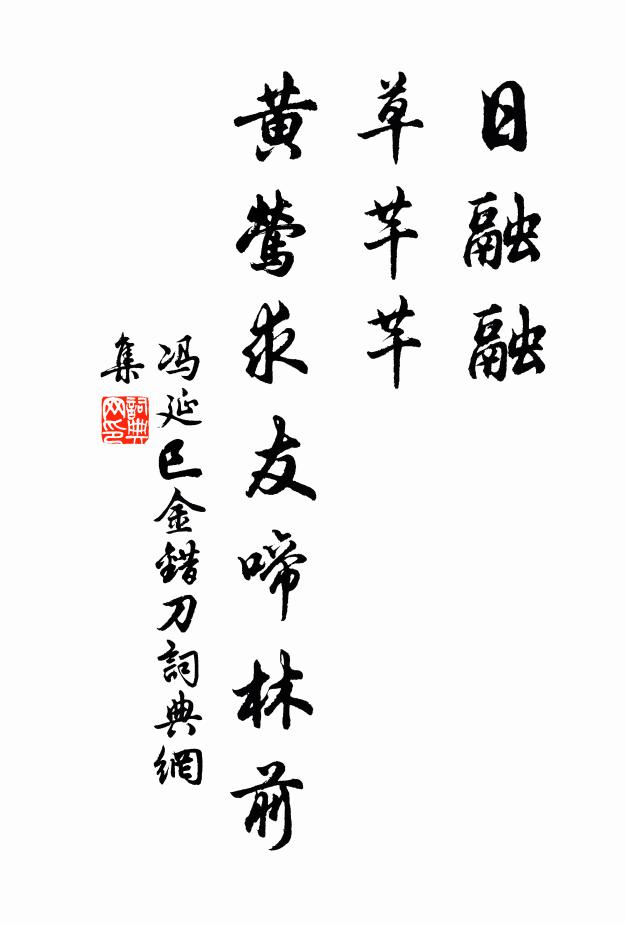 日融融
草芊芊
黄莺求友啼林前
冯延巳金錯刀詞典網
集
詞典
网印